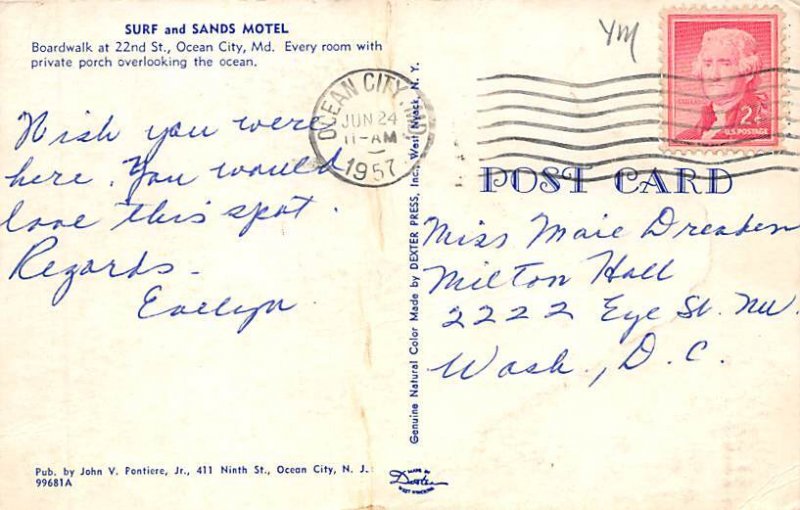 SURF and SANDS MOTEL
Boardwalk at 22nd St., Ocean City, Md. Every room with
private porch overlooking the ocean.
Wish you were
here. You would
love this spot.
Regards -
Evelyn
Pub. by John V. Pontiere, Jr., 411 Ninth St., Ocean City, N. J.
99681A
Genuine Natural Color Made by DEXTER PRESS, Inc., West Nyack, N. Y.
OCEAN CITY, MD.
JUN 24
11-AM
1957
YM
2¢
U.S. POSTAGE
POST CARD
Miss Maie
Milton Hall
2222 Eye St. NW.
Wash., D. C.
MADE BY
Dexter
WEST NYACK, N.Y.